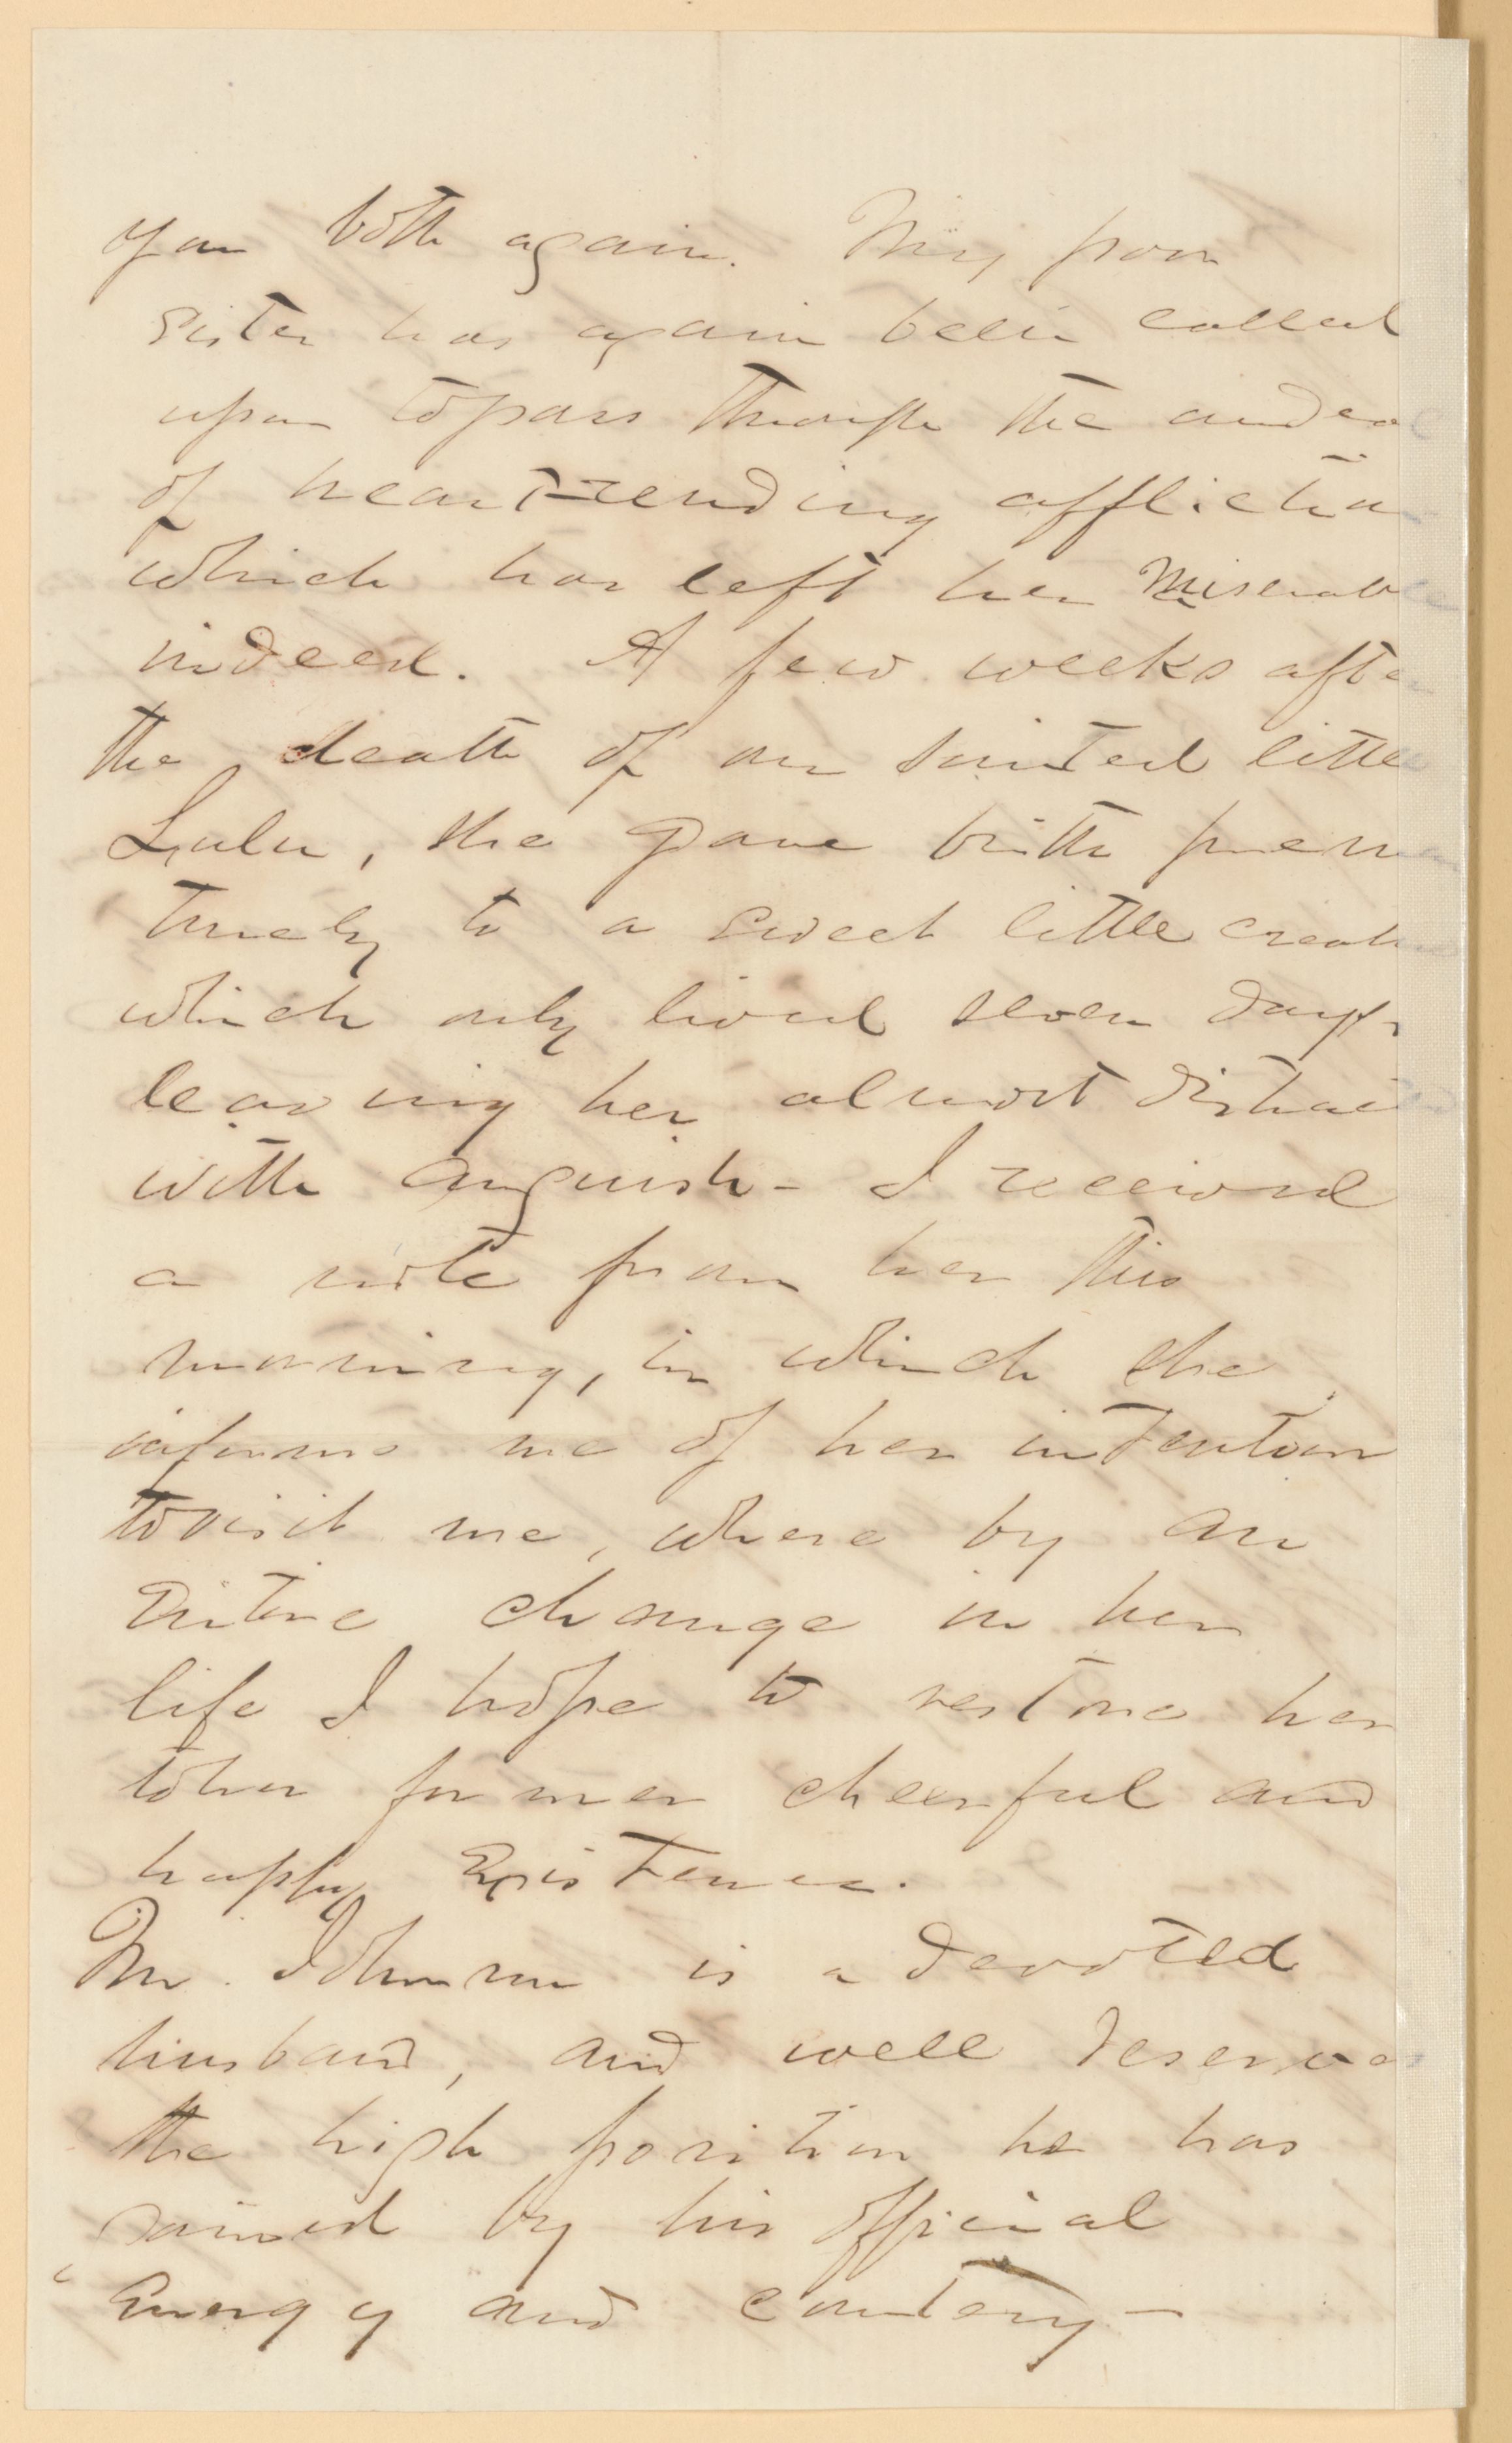 you both again. My poor
sister has again been called
upon to pass through the ordeal
of heart-rending affliction
which has left her miserable
indeed. A few weeks after
the death of our sainted little
Lulu, she gave birth prema
turely to a sweet little creature
which only lived seven days
leaving her almost distracted
with anguish - I received
a note from her this
morning, in which she
informs me of her intention
to visit me, where by an
Entire change in her
life I hope to restore her
to her former cheerful and
happy Existence.
Mr. Johnson is a devoted
husband, and well deserves
the high position he has
gained by his official
Energy and courtesy -